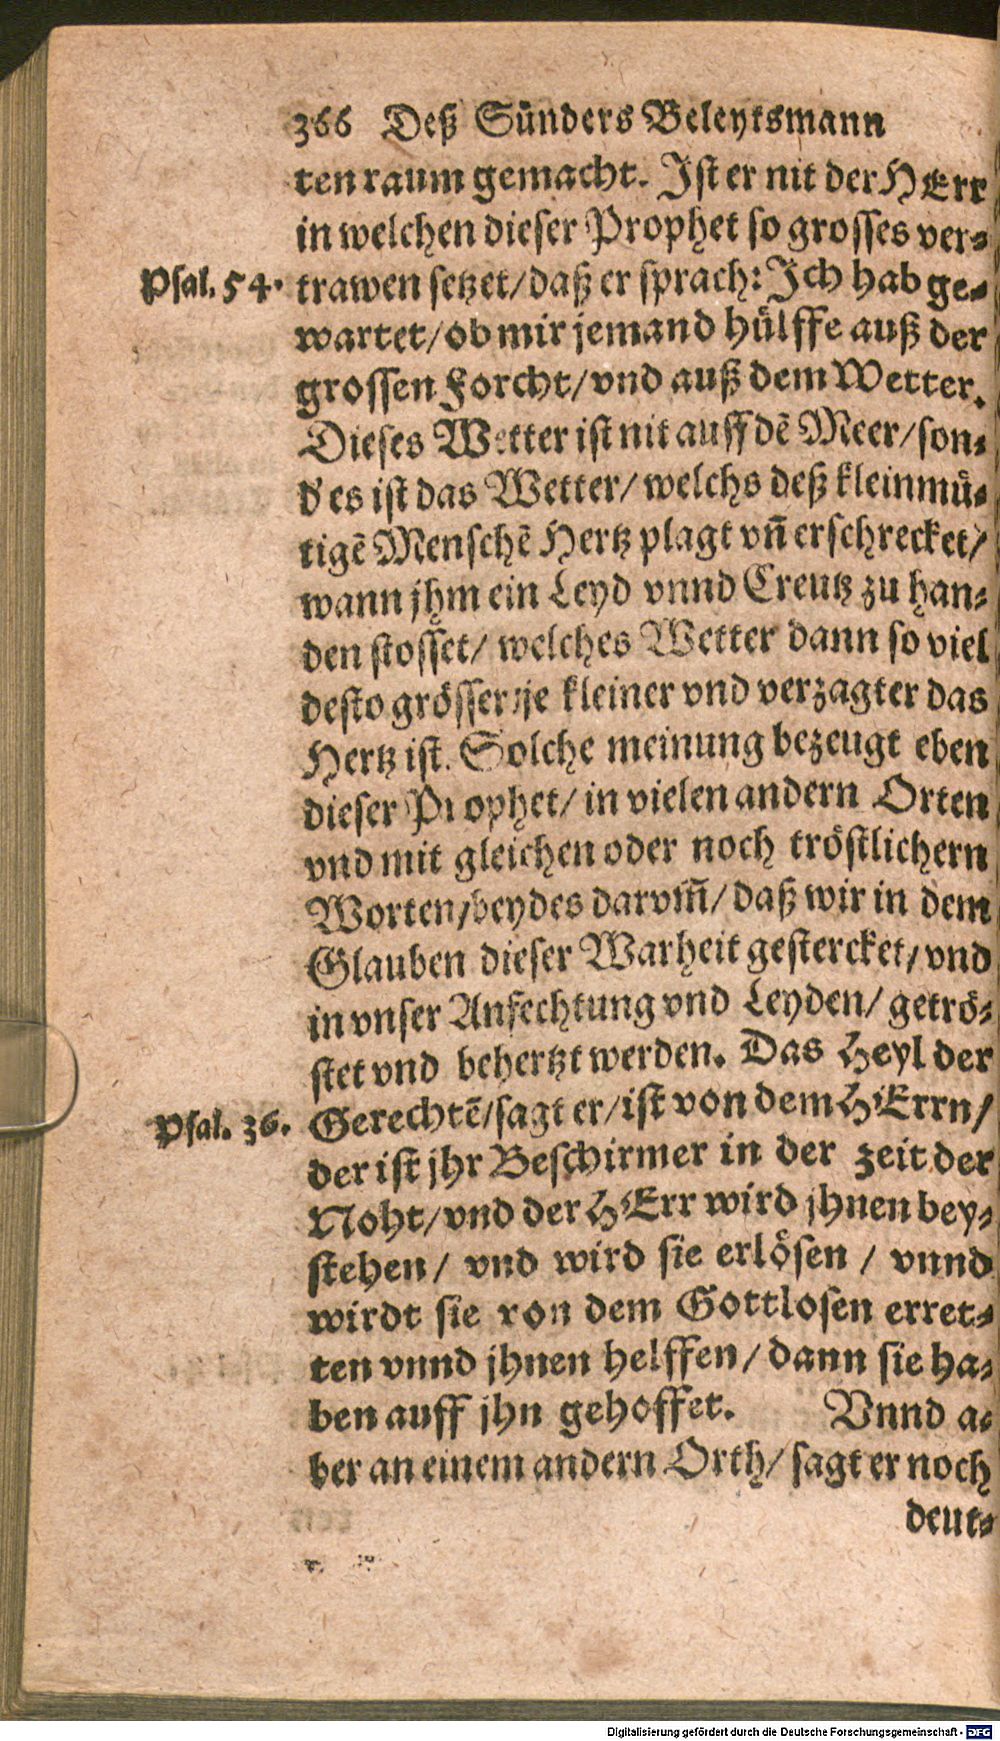 366 Deß Sünders Beleytsmann
ten raum gemacht. Ist er nit der HErr
in welchen dieser Prophet so grosses ver-
Psal. 54. trawen setzet/ daß er sprach: Ich hab ge-
wartet/ ob mir jemand hülffe auß der
grossen Forcht/ vnd auß dem Wetter.
Dieses Wetter ist nit auff dē Meer/ son-
d' es ist das Wetter/ welchs deß kleinmü-
tigē Menschē Hertz plagt vñ erschrecket/
wann jhm ein Leyd vnnd Creutz zu han-
den stosset/ welches Wetter dann so viel
desto grösser/ je kleiner vnd verzagter das
Hertz ist. Solche meinung bezeugt eben
dieser Prophet/ in vielen andern Orten
vnd mit gleichen oder noch tröstlichern
Worten/ beydes darvm̄/ daß wir in dem
Glauben dieser Warheit gestercket/ vnd
in vnser Anfechtung vnd Leyden/ getrö-
stet vnd behertzt werden. Das Heyl der
Psal. 36. Gerechtē/ sagt er/ ist von dem HErrn/
der ist jhr Beschirmer in der zeit der
Noht/ vnd der HErr wird jhnen bey-
stehen/ vnd wird sie erlösen / vnnd
wirdt sie von dem Gottlosen erret-
ten vnnd jhnen helffen/ dann sie ha-
ben auff jhn gehoffet. Vnnd a-
ber an einem andern Orth/ sagt er noch
deut-
Digitalisierung gefördert durch die Deutsche Forschungsgemeinschaft - DFG